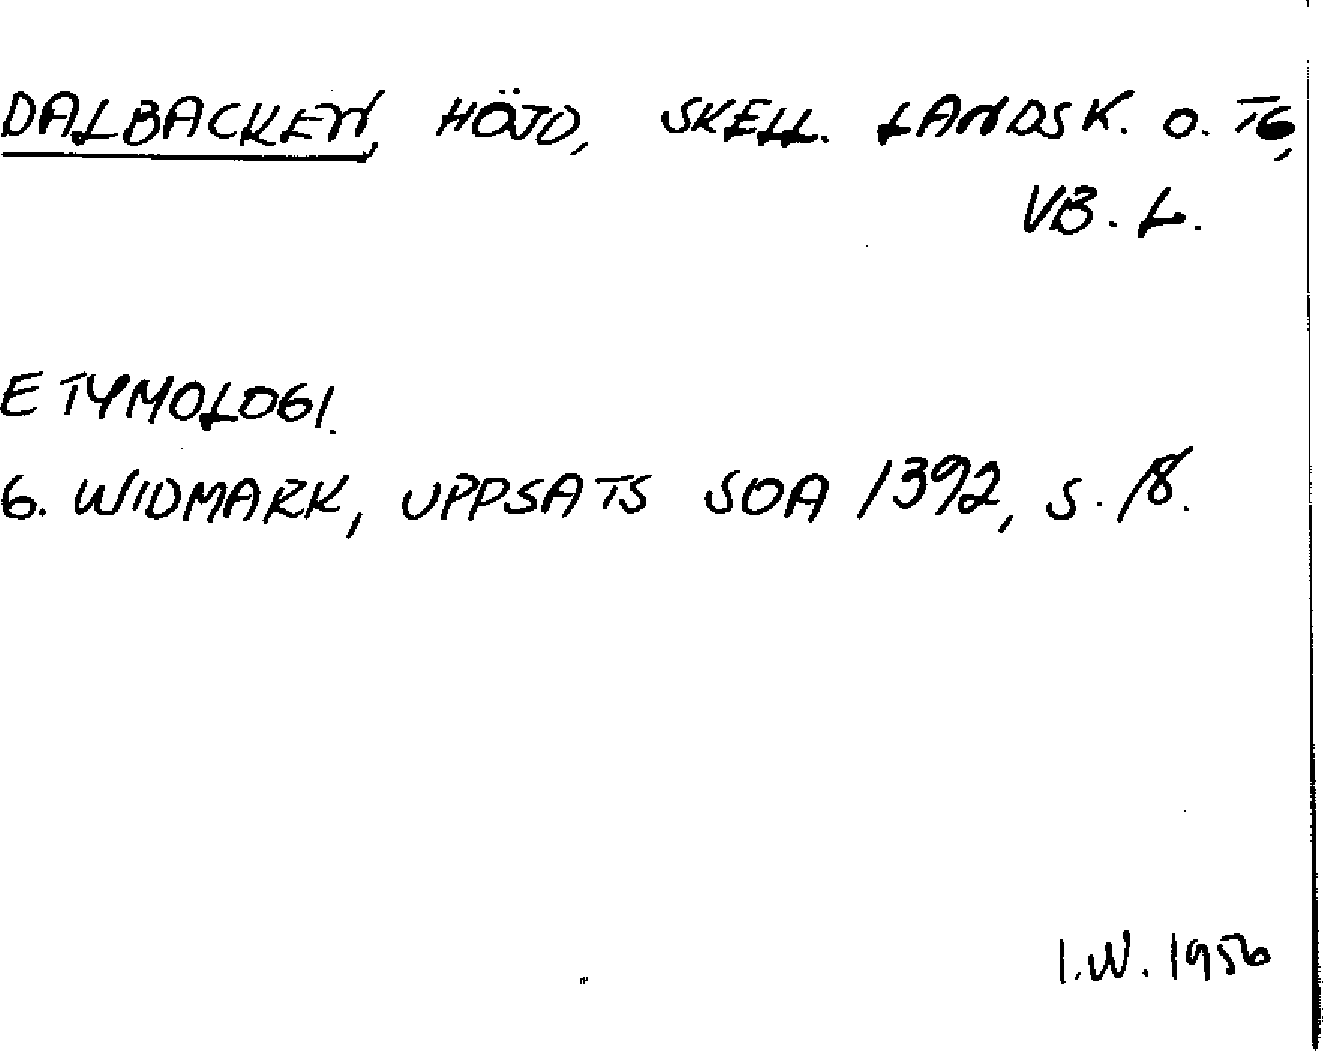 DALBACKEN, HÖJD, SKELL. LANDSK. O. TG,
VB. L.
ETYMOLOGI.
G. WIDMARK, UPPSATS SOA 1392, S. 18.
I.W. 1956